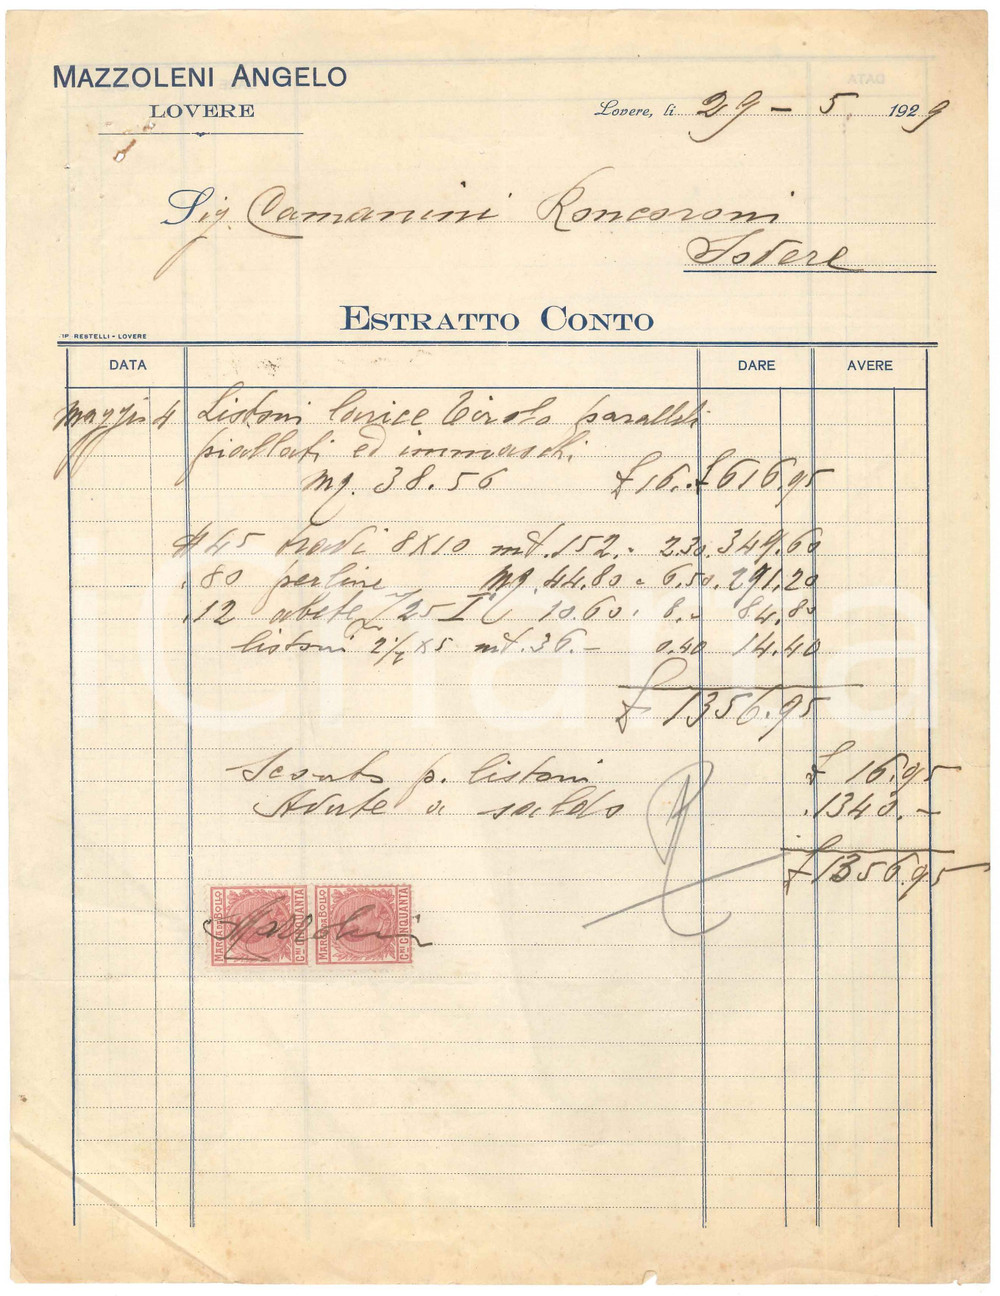 MAZZOLENI ANGELO
LOVERE
Lovere, li 29 - 5 1929
Sig. Camanini Roncoroni
Lovere
ESTRATTO CONTO
TIP. RESTELLI - LOVERE
DATA DARE AVERE
Maggio 4 Listoni larice Tirolo paralleli
piallati ed immaschi.
Mq. 38.56 £ 16.- £ 616.95
N 45 travi 8x10 mt. 152.- 2.30. 349.60
80 perline Mq. 44.80 6.50. 291.20
12 abete 25 I 10.60 8.- 84.80
listoni 2½x5 mt. 36.- 0.40 14.40
£ 1356.95
Sconto p. listoni £ 16.95
Avute a saldo 1340.-
£ 1356.95
MARCA DA BOLLO CMI CINQUANTA MARCA DA BOLLO CMI CINQUANTA
Mazzoleni